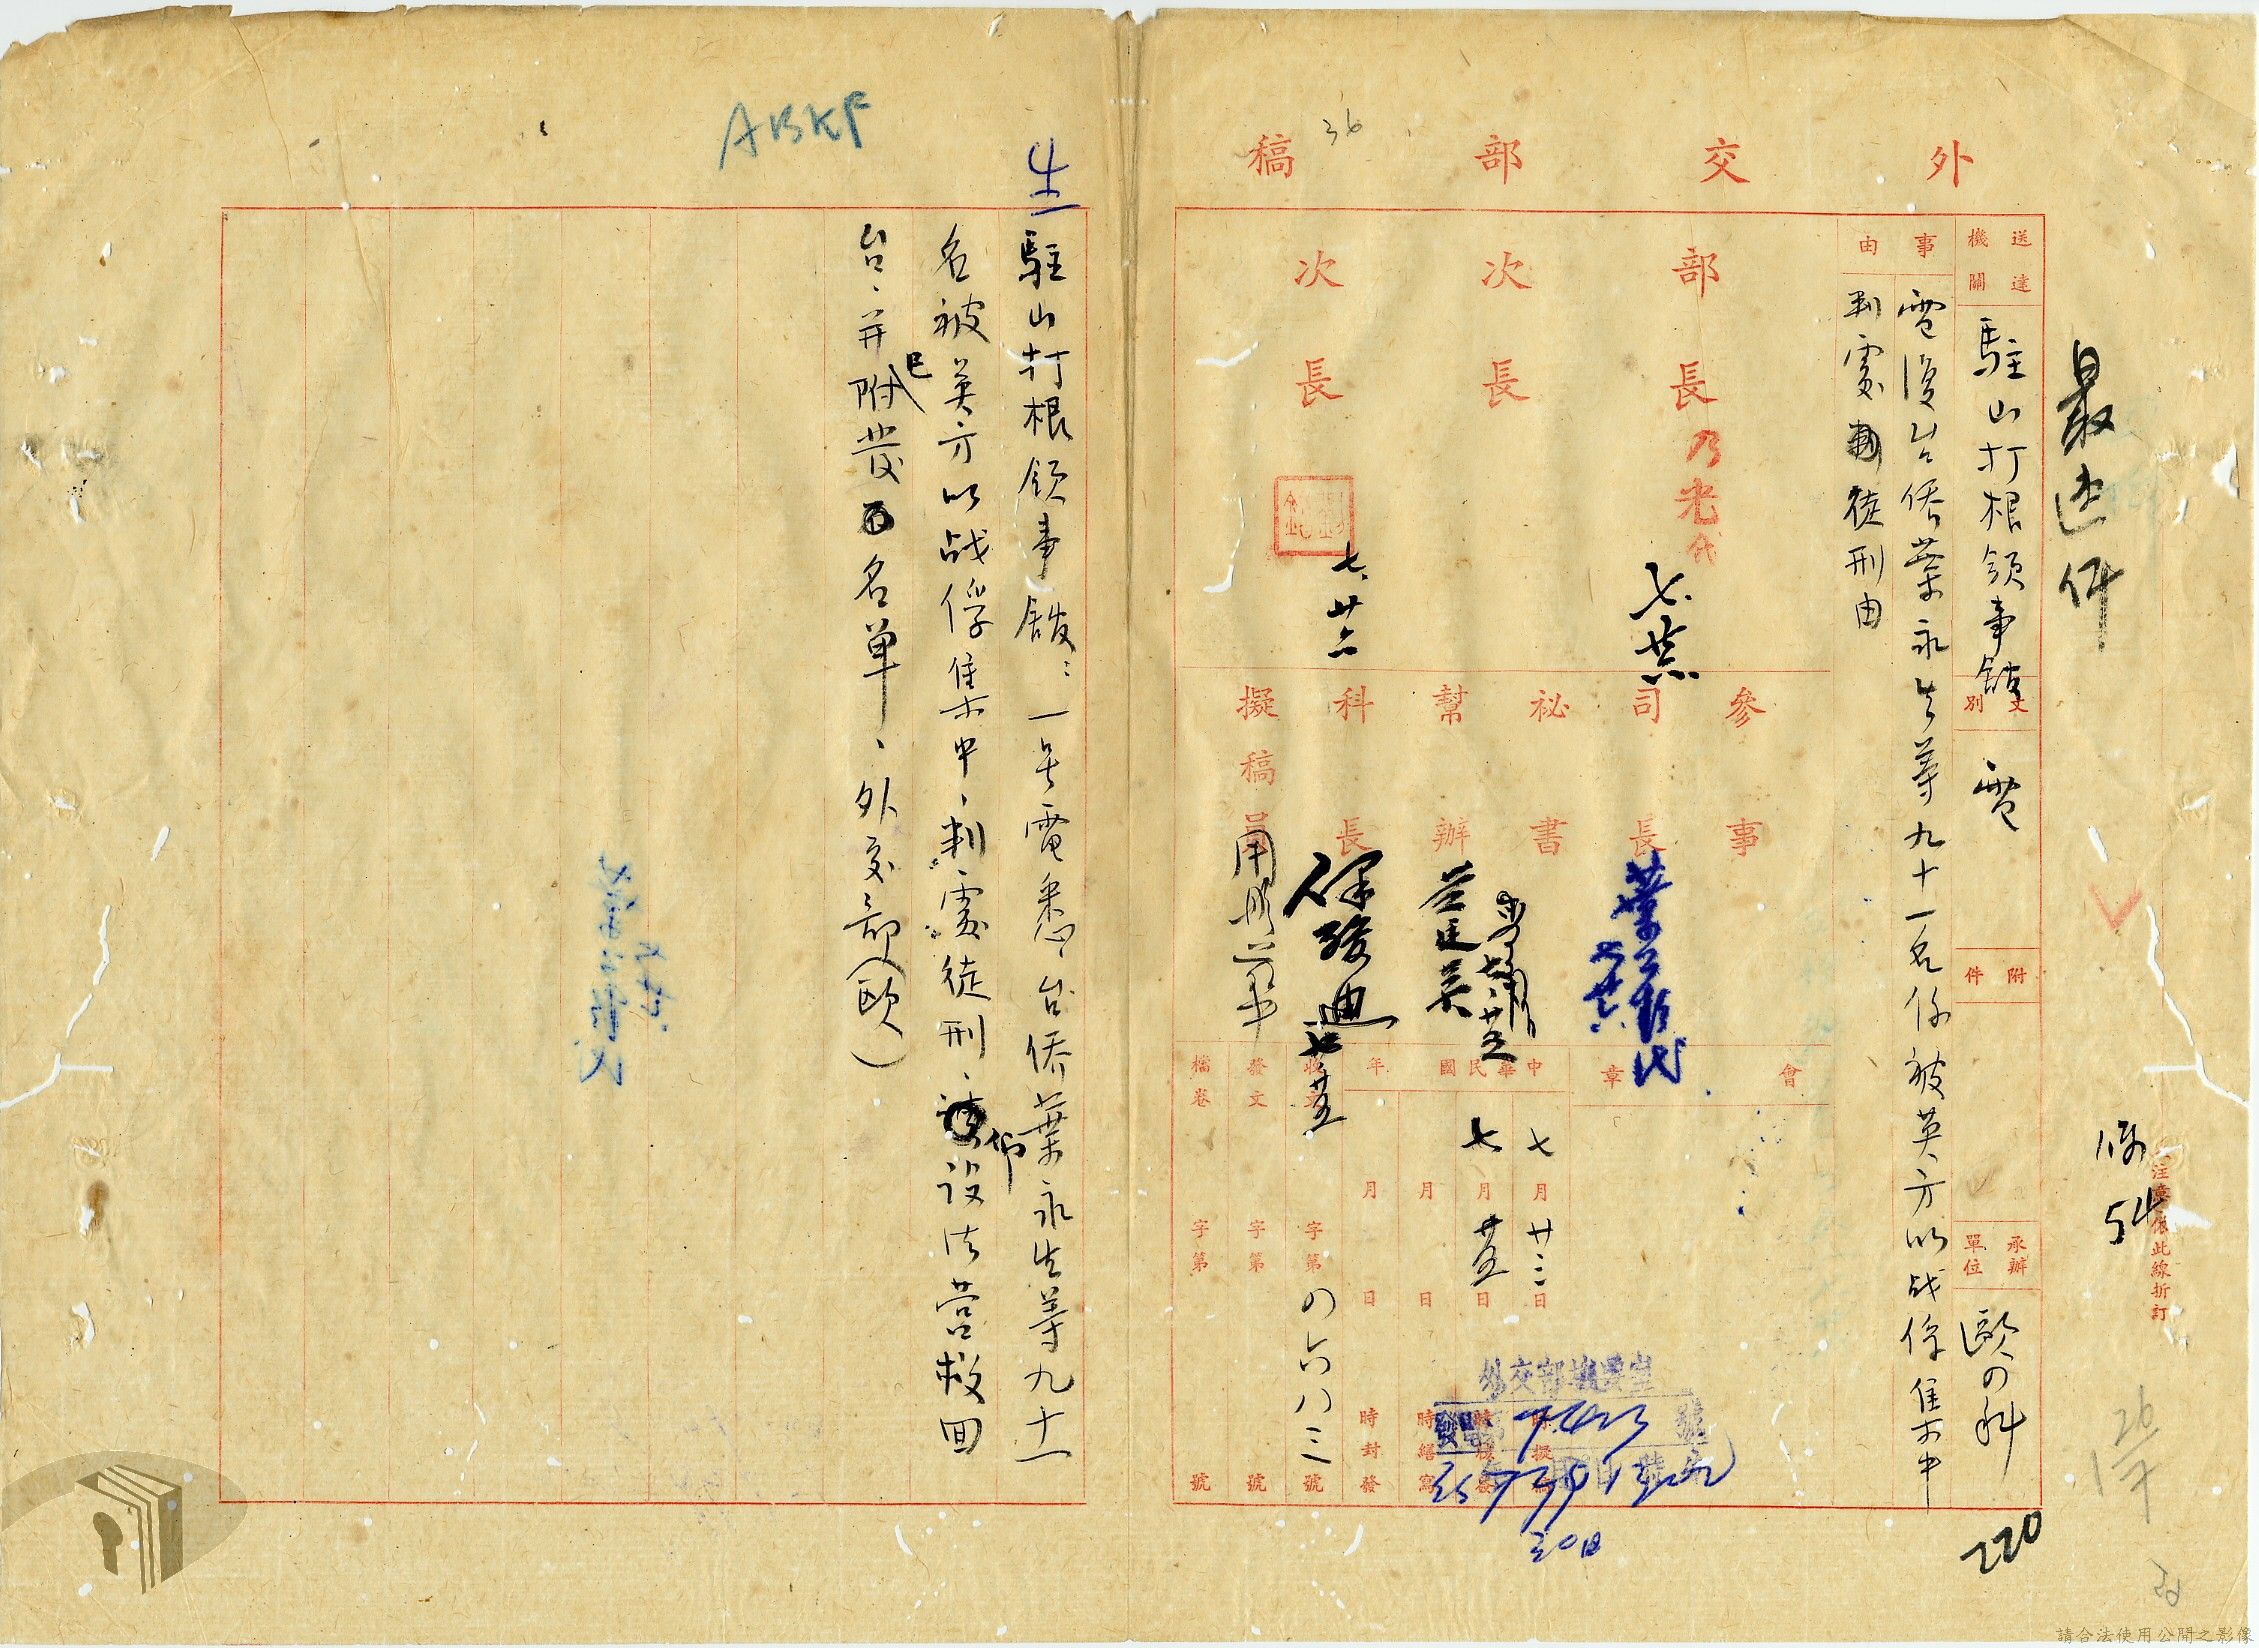 外交部稿
36
最速件
送達機關
駐山打根領事館
文別
電
附件
承辦單位
歐四科
事由
電復台僑葉永生等九十一名係被英方以战俘集中
判處徒刑由
部長
乃光代
次長
次長
七.
參事
司長
祕書
幫辦
科長
擬稿員
會章
中華民國年
七月廿三日
七月廿五日
月日
月日
時擬稿
時核發
時繕寫
時封發
收文字第四六八三號
發文字第號
檔卷字第號
外交部機要室
30日
注意依此線折訂
54
220
26
ABKF
生
駐山打根領事館:一号電悉台僑葉永生等九十一
名被英方以战俘集中、判處徒刑、仰設法营救回
台、并附已发名單、外交部(歐)
請合法使用公開之影像